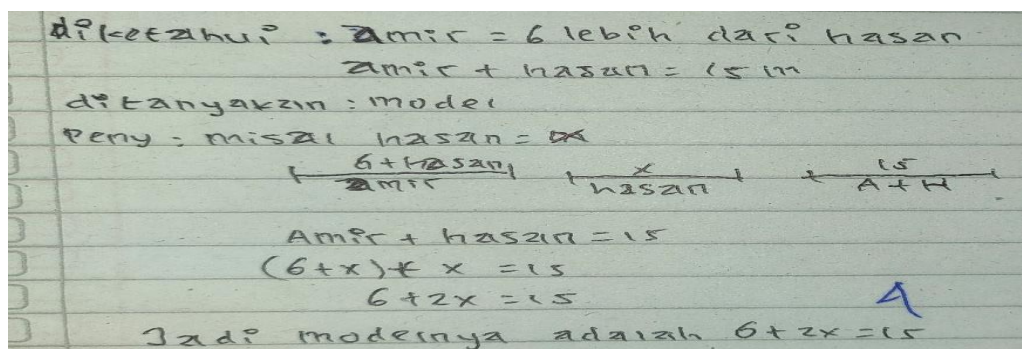 diketahui : Amir = 6 lebih dari hasan
amir + hasan = 15 m
ditanyakan : model
Peny : misal hasan = x
6 + Hasan x 15
amir hasan A + H
Amir + hasan = 15
(6 + x) + x = 15
6 + 2x = 15
4
Jadi modelnya adalah 6 + 2x = 15